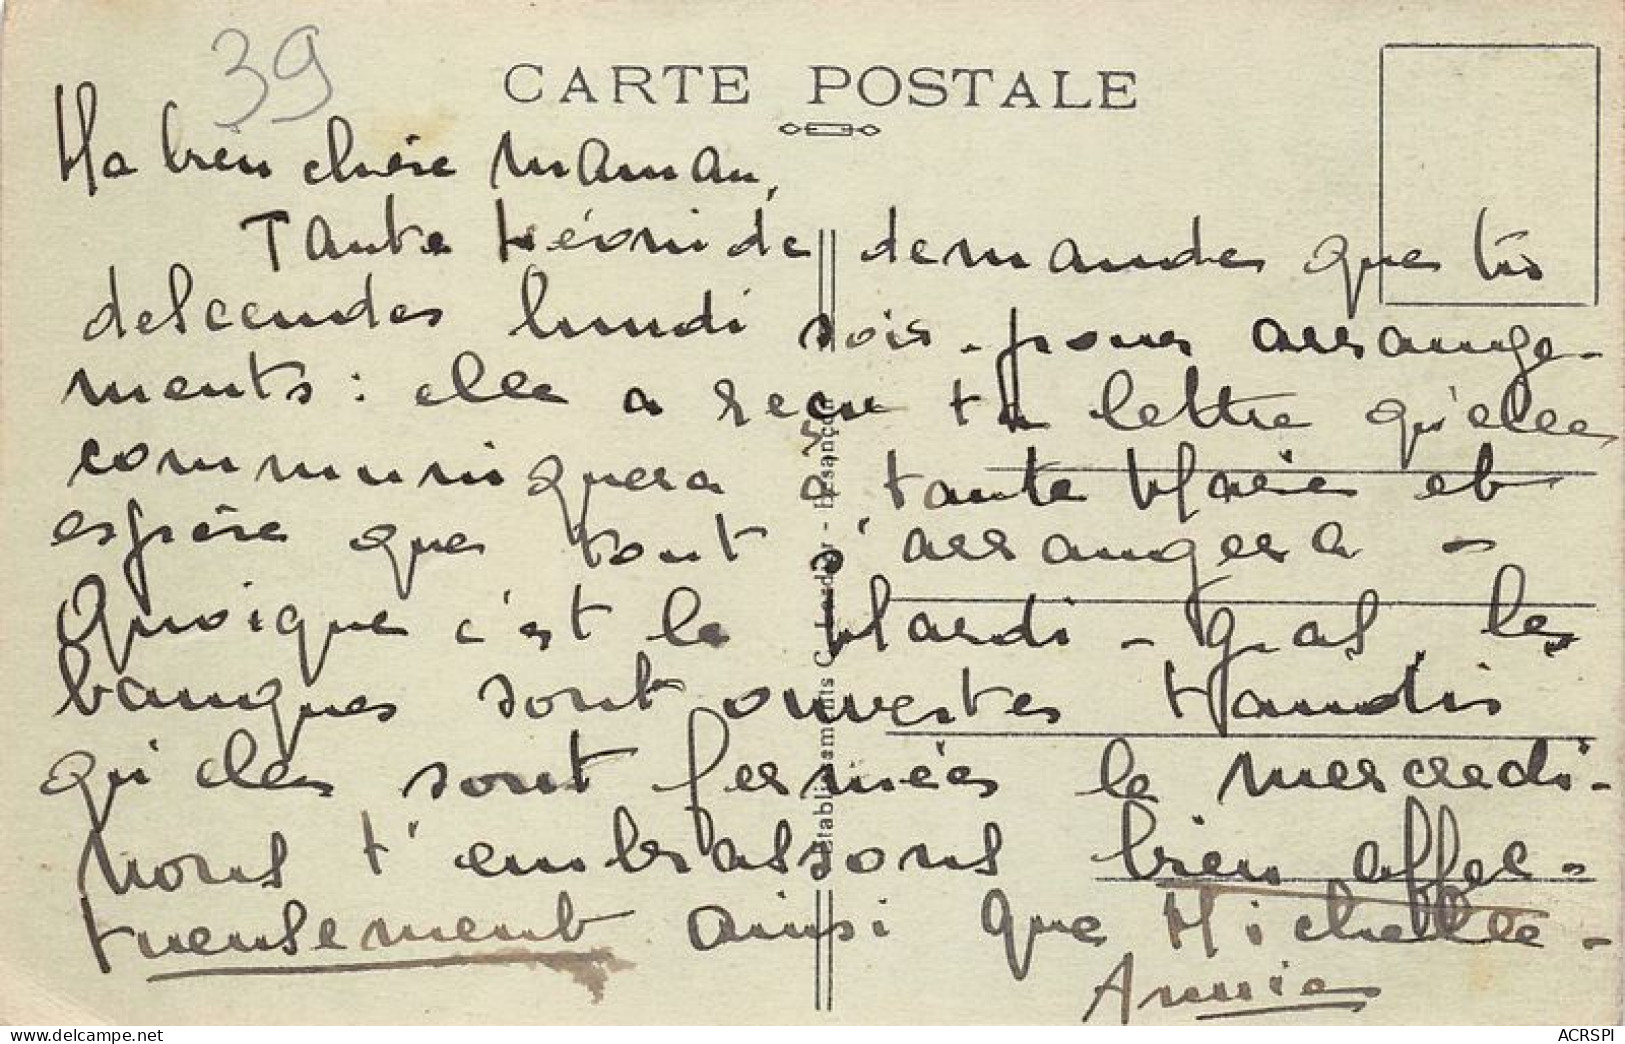 39
CARTE POSTALE
Ma bien chère Maman,
Tante Léonide demande que tu
descendes lundi soir - pour arrange-
ments : elle a reçu ta lettre qu'elle
communiquera à tante Marie et
espère que tout s'arrangera -
Quoique c'est le Mardi - gras, les
banques sont ouvertes tandis
qu'elles sont fermées le mercredi -
Nous t'embrassons bien affec-
tueusement ainsi que Michelle -
Annie
Etablissements C. Lardier - Besançon
ACRSPI